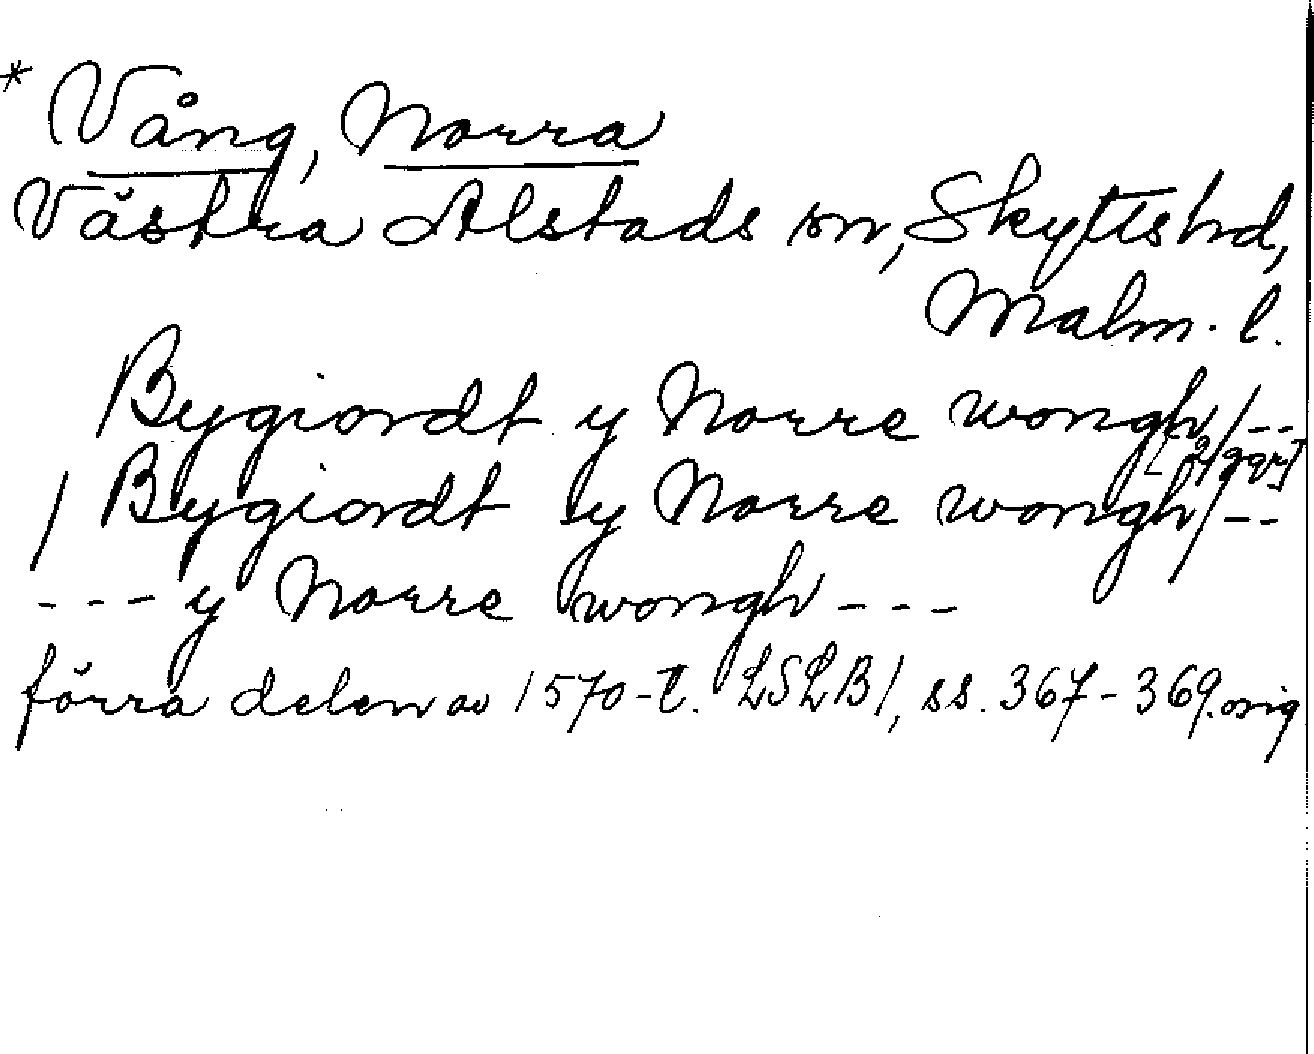 * Vång, Norra
Västra Alstads sn, Skytts hd,
Malm. l.
Bygiordt y Norre wongh / --
/ Bygiordt y Norre wongh / --
--- y Norre wongh ---
förra delen av 1570-t. LSLB1, ss. 367-369. orig